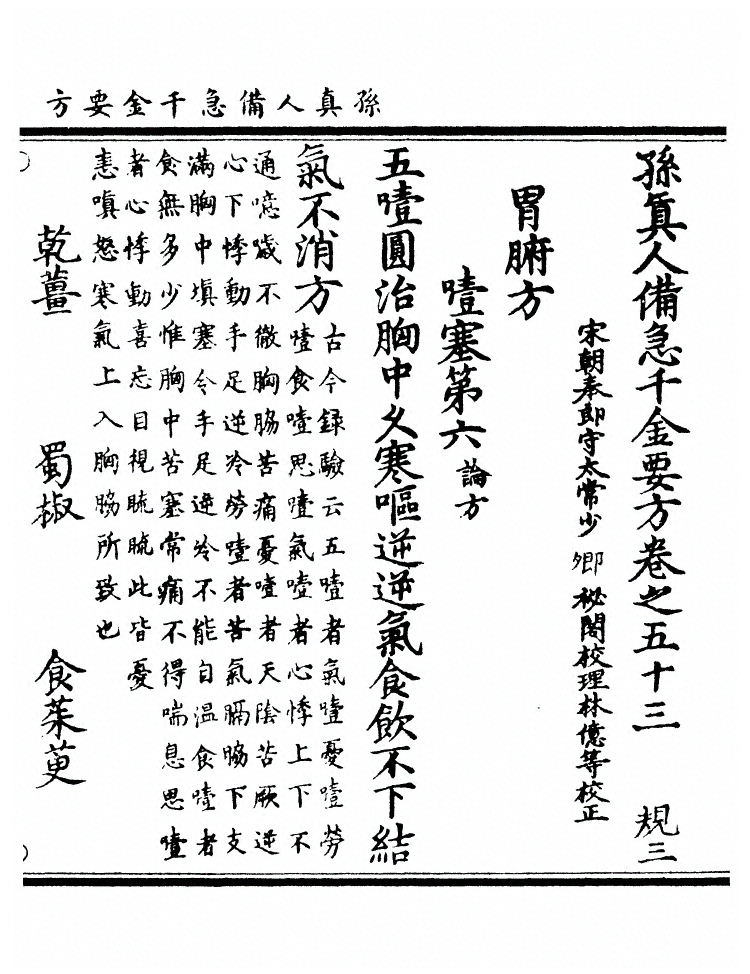 孫真人備急千金要方
孫眞人備急千金要方卷之五十三 規三
宋朝奉郎守太常少卿秘閣校理林億等校正
胃腑方
噎塞第六 論方
五噎圓治胸中久寒嘔逆逆氣食飲不下結
氣不消方 古今録驗云五噎者氣噎憂噎勞
噎食噎思噎氣噎者心悸上下不
通噫噦不徹胸脇苦痛憂噎者天陰苦厥逆
心下悸動手足逆冷勞噎者苦氣膈脇下支
滿胸中填塞令手足逆冷不能自温食噎者
食無多少惟胸中苦塞常痛不得喘息思噎
者心悸動喜忘目視𥆨𥆨此皆憂
恚嗔怒寒氣上入胸脇所致也
乾薑 蜀椒 食茱萸